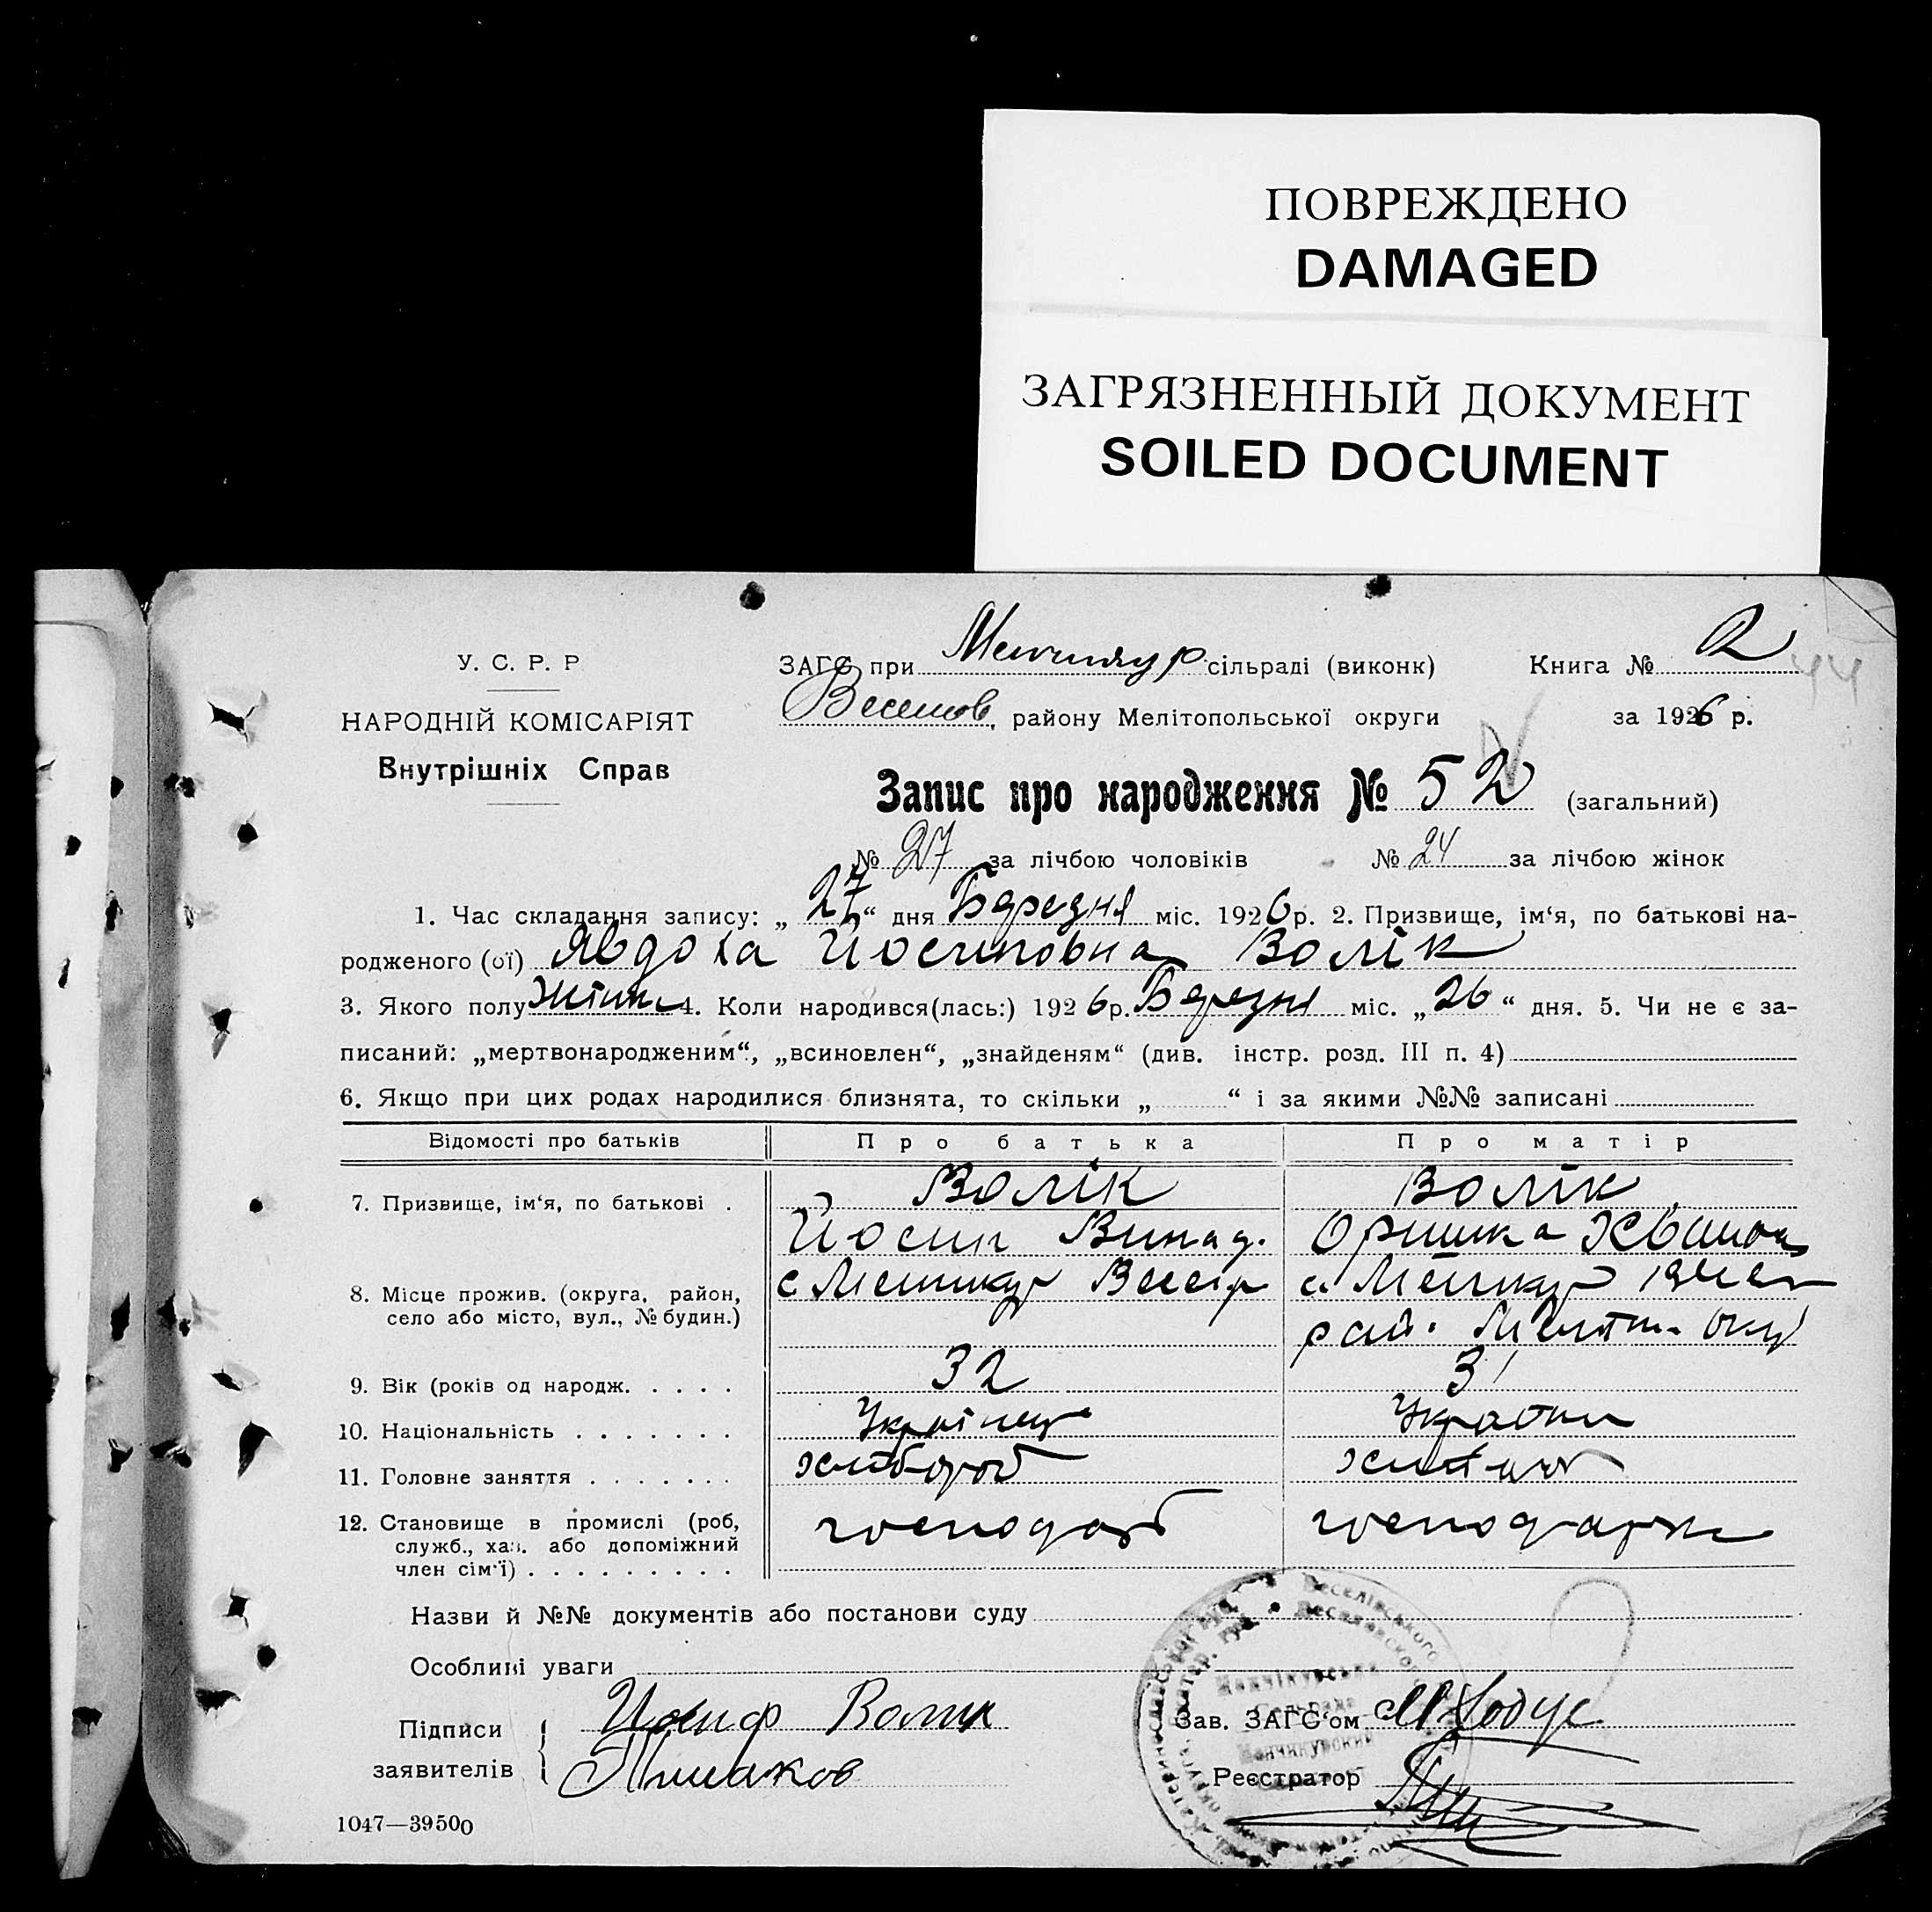 ПОВРЕЖДЕНО
DAMAGED
ЗАГРЯЗНЕННЫЙ ДОКУМЕНТ
SOILED DOCUMENT
У. С. Р. Р
НАРОДНІЙ КОМІСАРІЯТ
Внутрішніх Справ
ЗАГС при Менчикур сільраді (виконк) Книга № 2
44
Веселов. району Мелітопольської округи за 1926 р.
Запис про народження № 52 (загальний)
№ 27 за лічбою чоловіків № 24 за лічбою жінок
1. Час складання запису: „ 27 “ дня Березня міс. 1926 р. 2. Призвище, ім‘я, по батькові на-
родженого (ої) Явдоха Йосиповна Волік
3. Якого полу 4. Коли народився(лась:) 1926 р. Березня міс. „ 26 “ дня. 5. Чи не є за-
писаний: „мертвонародженим“, „всиновлен“, „знайденям“ (див. інстр. розд. III п. 4)
6. Якщо при цих родах народилися близнята, то скільки „ “ і за якими №№ записані
Відомості про батьків Про батька Про матір
7. Призвище, ім‘я, по батькові . Волік Волік
Йосип Оришка
8. Місце прожив. (округа, район, с Менчикур Весел с. Менчикур Весел
село або місто, вул., № будин.) рай. Меліт. окр
9. Вік (років од народж. . . . . 32 31
10. Національність . . . . . . . Українець Украінка
11. Головне заняття . . . . . . . хлібороб
12. Становище в промислі (роб, господар господарка
служб., хаз. або допоміжний
член сім‘ї) . . . . . . . . .
Назви й №№ документів або постанови суду
Особливі уваги
Підписи Иосиф Волик
заявителів
Зав. ЗАГС‘ом
Реєстратор
1047—39500
Веселівського
Веселовского
Менчікурська
Сільрада
Менчикурский